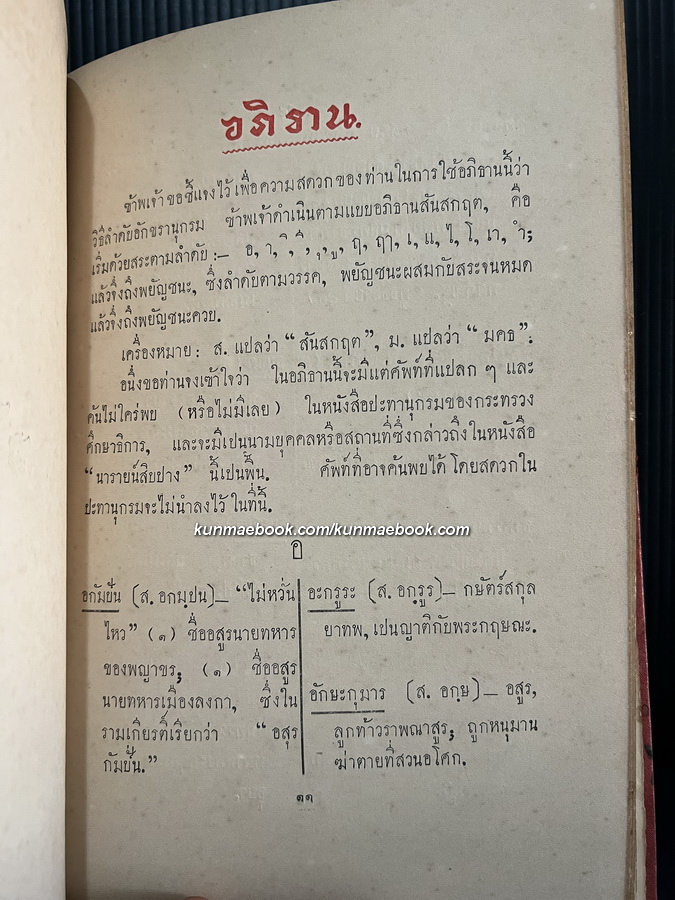 อภิธาน.
ข้าพเจ้าขอชี้แจงไว้เพื่อความสดวกของท่านในการใช้อภิธานนี้ว่า
วิธีลำดับอักขรานุกรม ข้าพเจ้าดำเนินตามแบบอภิธานสันสกฤต, คือ
เริ่มด้วยสระตามลำดับ:— อ, า, ิ, ี, ุ, ู, ฤ, ฤๅ, เ, แ, ไ, โ, เา, ำ;
แล้วจึ่งถึงพยัญชนะ, ซึ่งลำดับตามวรรค, พยัญชนะผสมกับสระจนหมด
แล้วจึ่งถึงพยัญชนะควบ.
เครื่องหมาย: ส. แปลว่า “สันสกฤต”, ม. แปลว่า “มคธ”.
อนึ่งขอท่านจงเข้าใจว่า ในอภิธานนี้จะมีแต่ศัพท์ที่แปลก ๆ และ
ค้นไม่ใคร่พบ (หรือไม่มีเลย) ในหนังสือปะทานุกรมของกระทรวง
ศึกษาธิการ, และจะมีเปนนามบุคคลหรือสถานที่ซึ่งกล่าวถึงในหนังสือ
“นารายน์สิบปาง” นี้เปนพื้น. ศัพท์ที่อาจค้นพบได้โดยสดวกใน
ปะทานุกรมจะไม่นำลงไว้ในที่นี้.
kunmaebook.com/kunmaebook.com
อ
อกัมปัน (ส. อกมฺปน)— “ไม่หวั่น
ไหว” (๑) ชื่ออสูรนายทหาร
ของพญาขร; (๑) ชื่ออสูร
นายทหารเมืองลงกา, ซึ่งใน
รามเกียรติ์เรียกว่า “อสุร
กัมปั่น.”
อะกรูระ (ส. อกฺรูร)— กษัตร์สกุล
ยาทพ, เปนญาติกับพระกฤษณะ.
อักษะกุมาร (ส. อกฺษ)— อสูร,
ลูกท้าวราพณาสูร; ถูกหนุมาน
ฆ่าตายที่สวนอโศก.
๑๑